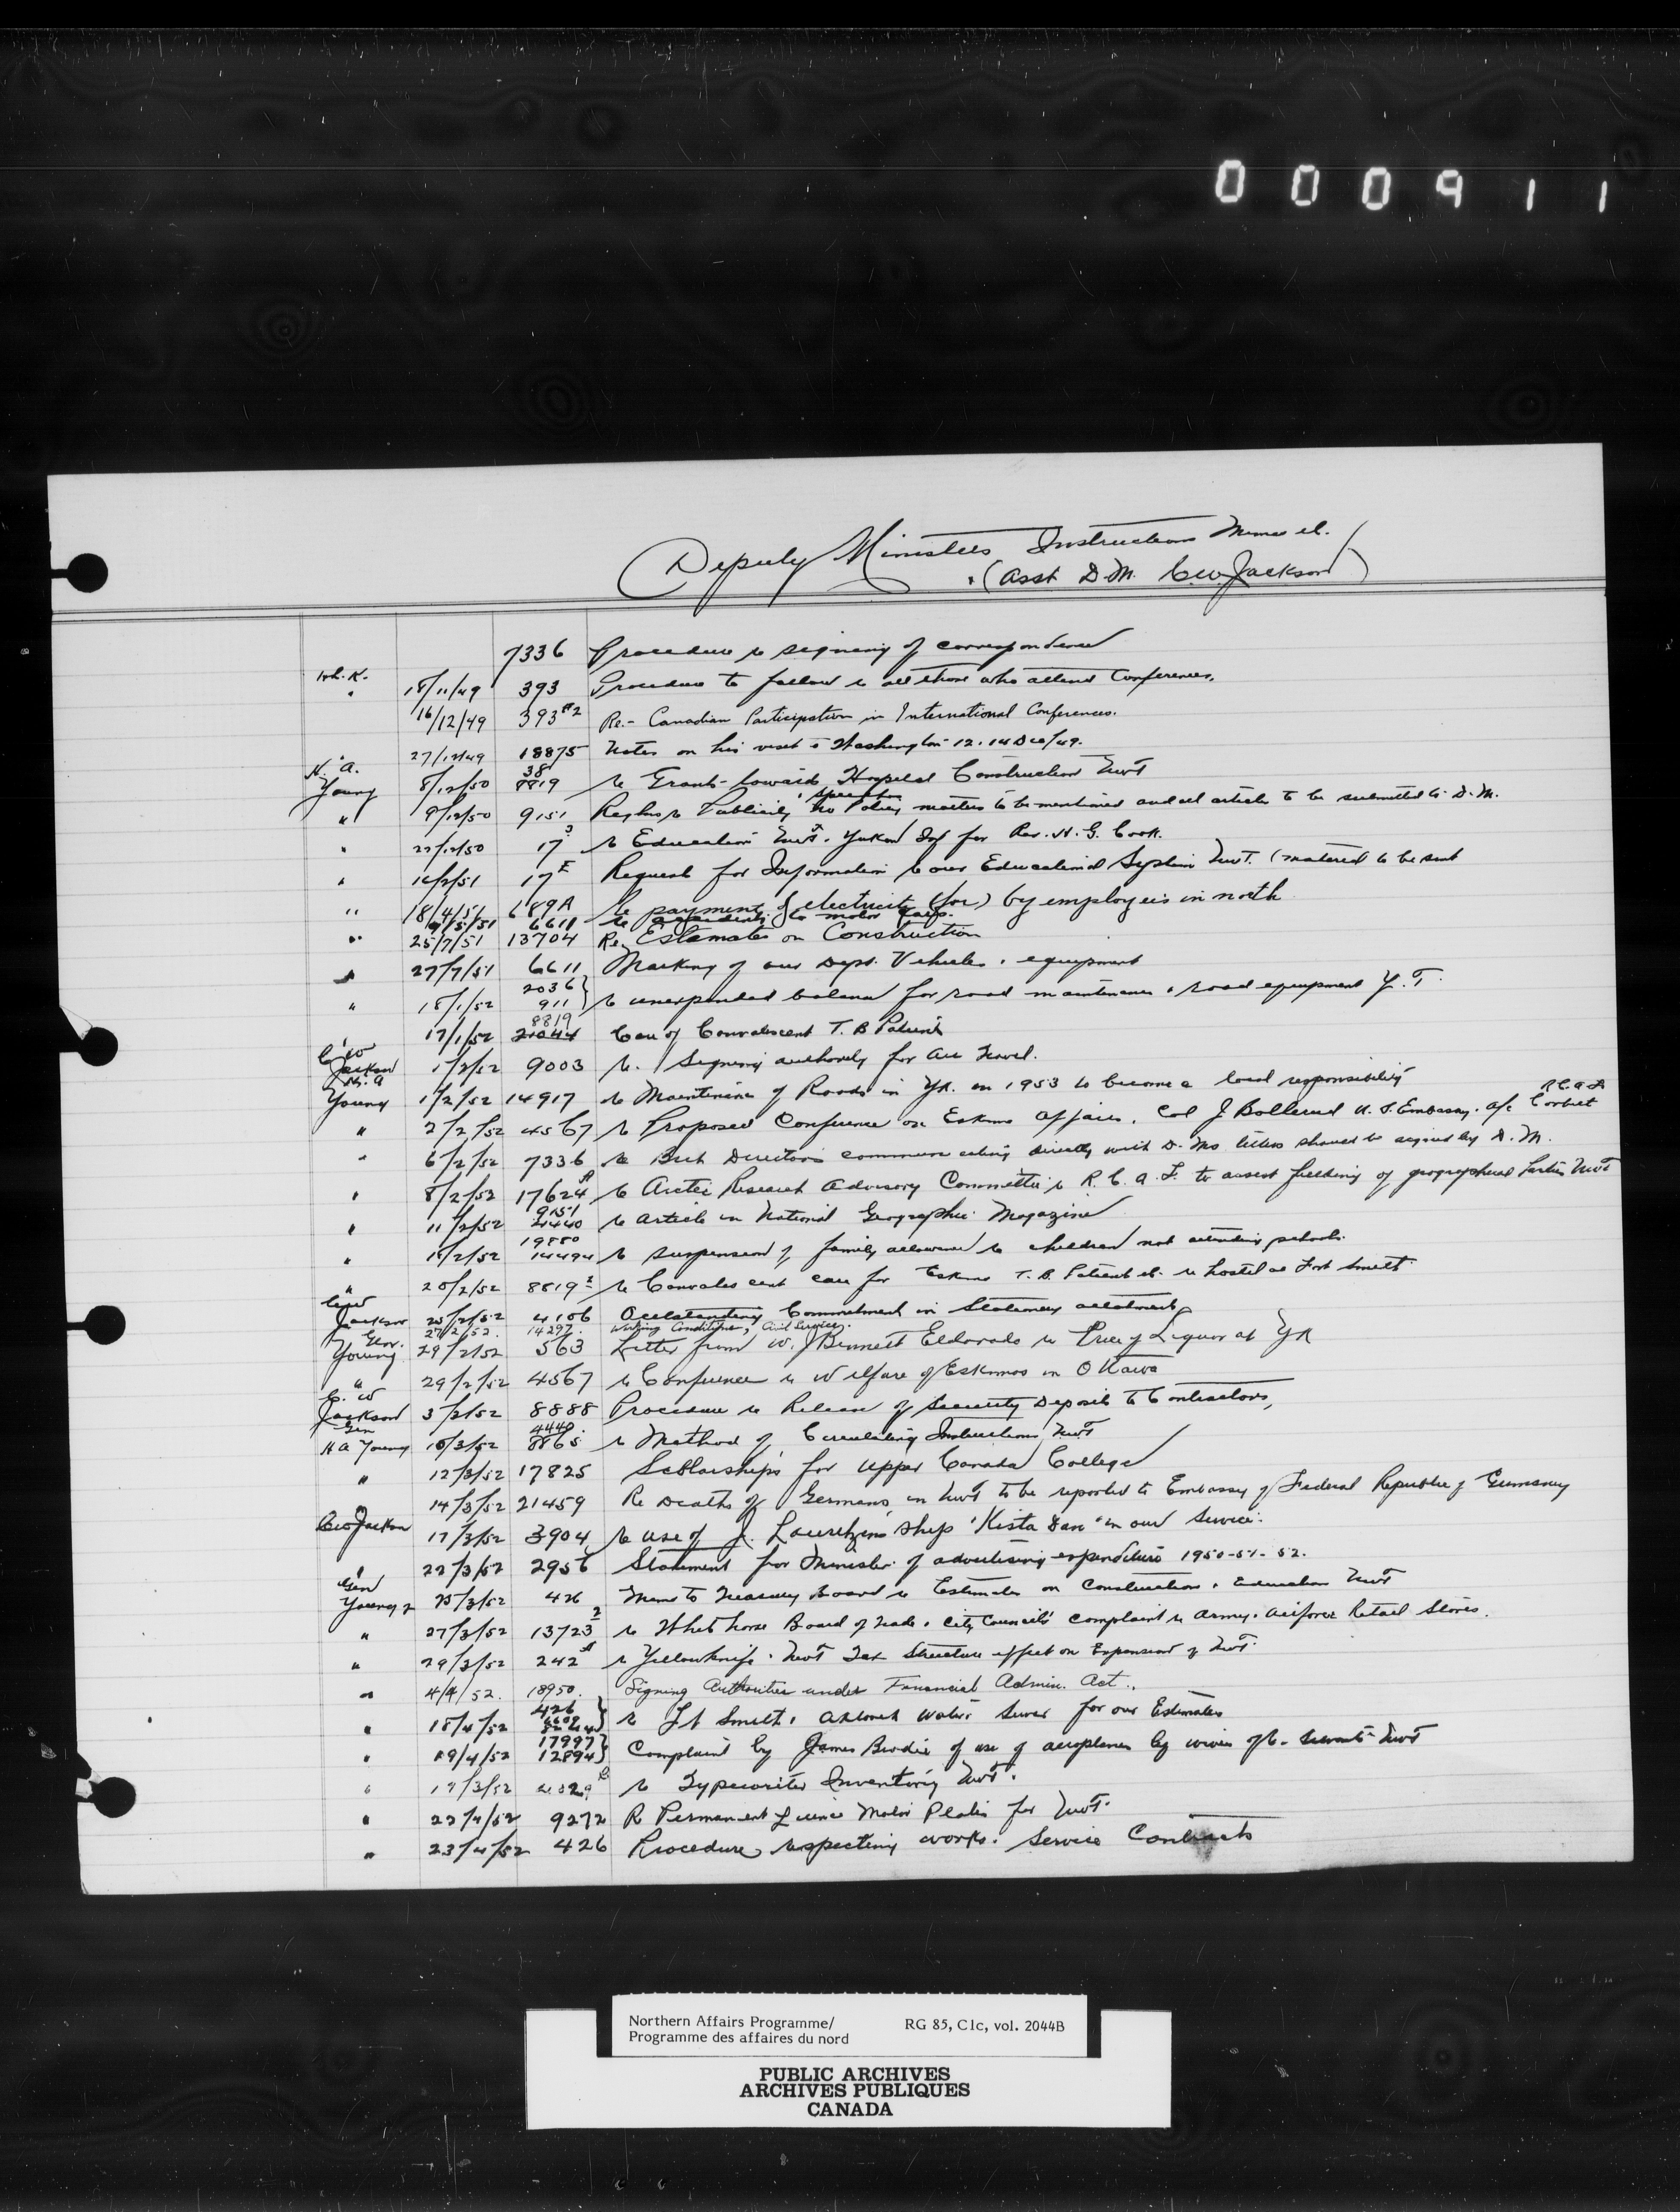 000911
Deputy Ministers Instructions Memos etc.
(Asst D.M. C.W. Jackson)
7336 Procedure re signing of correspondence
18/11/49 393 Procedure to follow re all those who attend Conferences.
16/12/49 393 #2 Re.- Canadian Participation in International Conferences.
27/12/49 18875 Notes on his visit to Washington 12-14 Dec/49.
H.A. Young 8/12/50 38 8819 re Grants towards Hospital Construction NWT
" 9/12/50 9151 re Publicity no Policy matters to be mentioned and all articles to be submitted to D.M.
" 22/12/50 17 3 re Education NWT. Yukon Inf for Rev. H. G. Cook.
" 16/2/51 17 E Request for Information re our Educational System NWT. (material to be sent
" 18/4/51 689A Re payment of electricity (for) by employees in north
9/5/51 6611 re accidents to motor cars.
" 25/7/51 13704 Re. Estimates on Construction
" 27/7/51 6611 Marking of our Dept. Vehicles & equipment
" 18/1/52 2036 911 } re unexpended balance for road maintenance & road equipment Y.T.
17/1/52 8819 21044 Care of Convalescent T.B Patients
C.W Jackson 1/2/52 9003 re. Signing authority for Air Travel.
H.A Young 1/2/52 14917 re Maintenance of Roads in YK. in 1953 to become a local responsibility
" 2/2/52 4567 re Proposed Conference on Eskimo affairs. Col J Bollerud U.S. Embassy. A/C Corbet RCAF
" 6/2/52 7336 re Directors communicating directly with D. Ms letters should be signed by D.M.
" 8/2/52 17624 A re Arctic Research Advisory Committee & R.C.A.F. to assist fielding of geographical Parties NWT
" 11/2/52 9151 4440 re article in National Geographic Magazine
" 18/2/52 19880 14494 re suspension of family allowance to children not attending schools.
" 20/2/52 8819 re Convalescent care for Eskimo T.B. Patients etc. re hostel at Fort Smith
C.W Jackson 25/2/52 4106 Outstanding Commitment in Stationery allotment
27/2/52. 14297. Working Conditions, Civil Service.
Gen. Young 29/2/52 563 Letter from W. J Bennett Eldorado re Price of Liquor at YK
" 29/2/52 4567 re Conference re Welfare of Eskimos in Ottawa
C. W Jackson 3/3/52 8888 Procedure re Release of Security Deposits to Contractors,
Gen H A Young 10/3/52 4440 8865 re Method of Circulating Instructions NWT
" 12/3/52 17825 Scholarships for Upper Canada College
14/3/52 21459 Re Deaths of Germans in NWT to be reported to Embassy of Federal Republic of Germany
CW Jackson 17/3/52 3904 re use of J. Lauritzen's ship "Kista Dan" in our Service.
" 22/3/52 2956 Statement for Minister of advertising expenditure 1950-51-52.
Gen Young 25/3/52 426 Memo to Treasury Board re Estimates on Construction & Education NWT
" 27/3/52 13723 2 re Whitehorse Board of Trade & City Council's complaint re Army & Airforce Retail Stores.
" 29/3/52 242 A re Yellowknife & NWT Tax Structure effect on Expansion of NWT.
" 4/4/52. 18950. Signing Authorities under Financial Admin. Act.
" 18/4/52 426 } re Ft Smith & Aklavik Water & Sewer for our Estimates
" 19/4/52 17997 12894 } Complaint by James Brodie of use of aeroplanes by wives of C. Servants NWT
" 19/3/52 4029 re Typewriter Inventory NWT.
" 22/4/52 9272 Re Permanent Licence Motor Plates for NWT.
" 23/4/52 426 Procedure respecting works & Service Contracts
Northern Affairs Programme/
Programme des affaires du nord
RG 85, C1c, vol. 2044B
PUBLIC ARCHIVES
ARCHIVES PUBLIQUES
CANADA